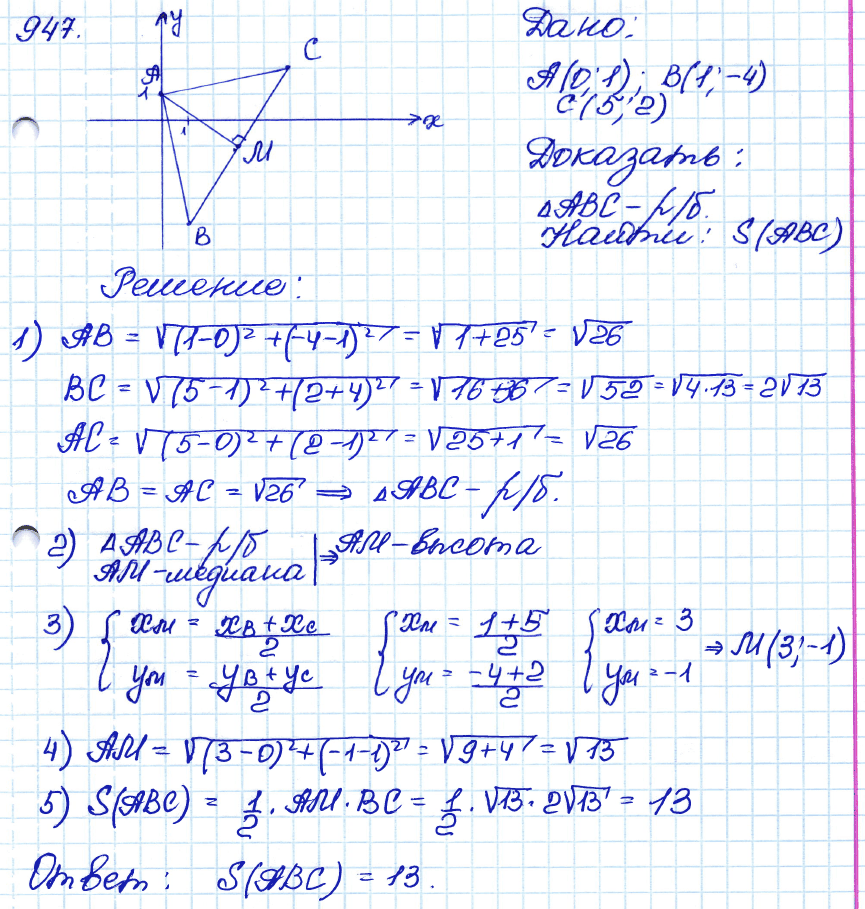 947.
y
C
A
1
1
x
M
B
Дано:
A(0;1); B(1;-4)
C(5;2)
Доказать:
△ABC – р/б.
Найти: S(ABC)
Решение:
1) AB = √((1-0)²+(-4-1)²) = √(1+25) = √26
BC = √((5-1)²+(2+4)²) = √(16+36) = √52 = √(4·13) = 2√13
AC = √((5-0)²+(2-1)²) = √(25+1) = √26
AB = AC = √26 ⇒ △ABC – р/б.
2) △ABC – р/б | ⇒ AM – высота
AM – медиана |
3) { xм = (xв + xс)/2 { xм = (1+5)/2 { xм = 3 ⇒ M(3;-1)
yм = (yв + yс)/2 yм = (-4+2)/2 yм = -1
4) AM = √((3-0)²+(-1-1)²) = √(9+4) = √13
5) S(ABC) = 1/2 · AM · BC = 1/2 · √13 · 2√13 = 13
Ответ: S(ABC) = 13.